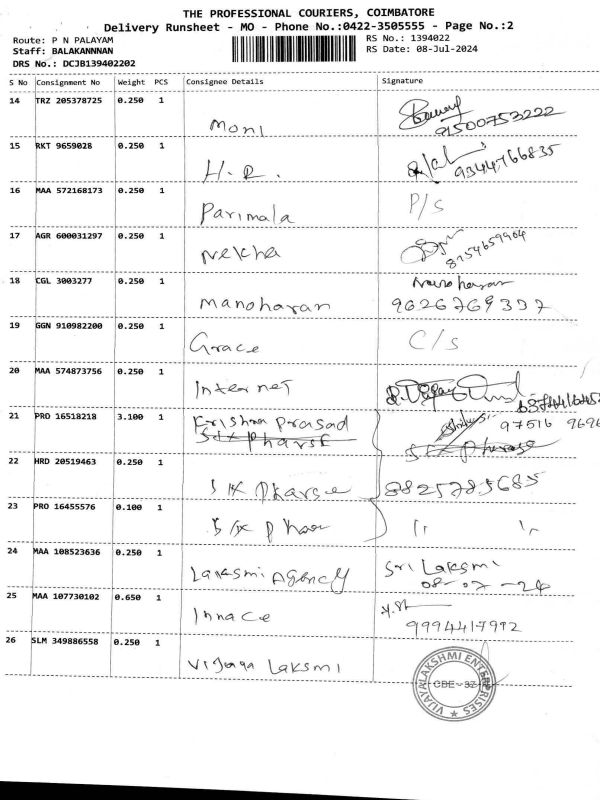 THE PROFESSIONAL COURIERS, COIMBATORE
Delivery Runsheet - MO - Phone No.:0422-3505555 - Page No.:2
Route: P N PALAYAM
RS No.: 1394022
Staff: BALAKANNNAN
RS Date: 08-Jul-2024
DRS No.: DCJB139402202
S No Consignment No Weight PCS Consignee Details Signature
14 TRZ 205378725 0.250 1
Moni
91500753222
15 RKT 9659028 0.250 1
H.R.
9344766835
16 MAA 572168173 0.250 1
Parimala P/s
17 AGR 600031297 0.250 1
Nekha 8754659904
18 CGL 3003277 0.250 1
Manoharan
Manoharan 9626769337
19 GGN 910982200 0.250 1
Grace C/s
20 MAA 574873756 0.250 1
Internet
21 PRO 16518218 3.100 1
Krishna Prasad 97516 9696
22 HRD 20519463 0.250 1
8825785685
23 PRO 16455576 0.100 1
" "
24 MAA 108523636 0.250 1
Lakasmi Agency Sri Laksmi
08-07-24
25 MAA 107730102 0.650 1
Innace
9994417992
26 SLM 349886558 0.250 1
Vijaya Laksmi
VIJAYALAKSHMI ENTERPRISES
CBE-37